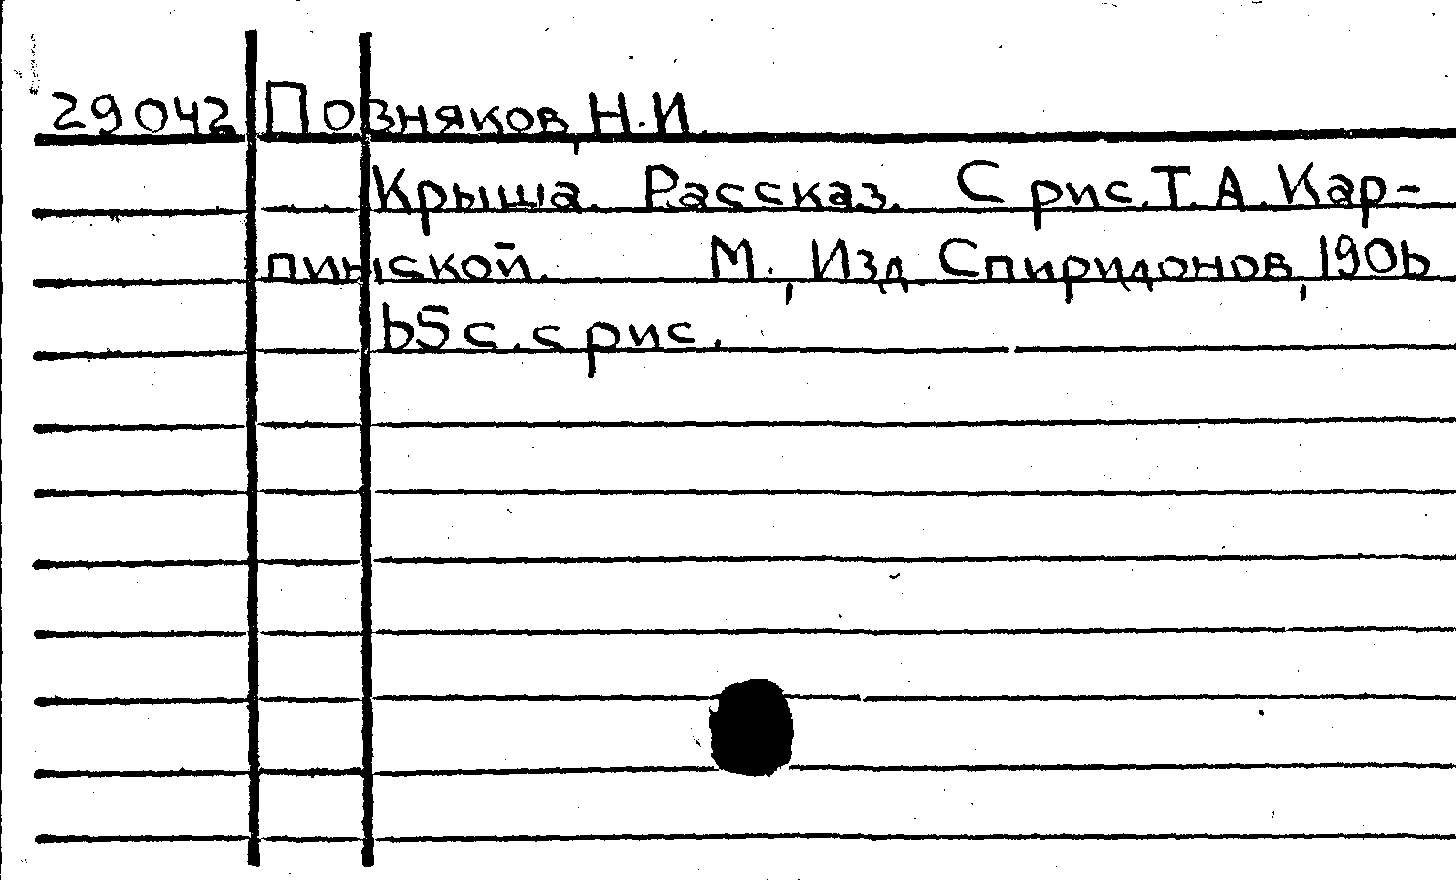 29042 Позняков, Н.И.
Крыша. Рассказ. С рис. Т.А. Кар-
пинской. М., Изд. Спиридонов, 1906
65 с. с рис.